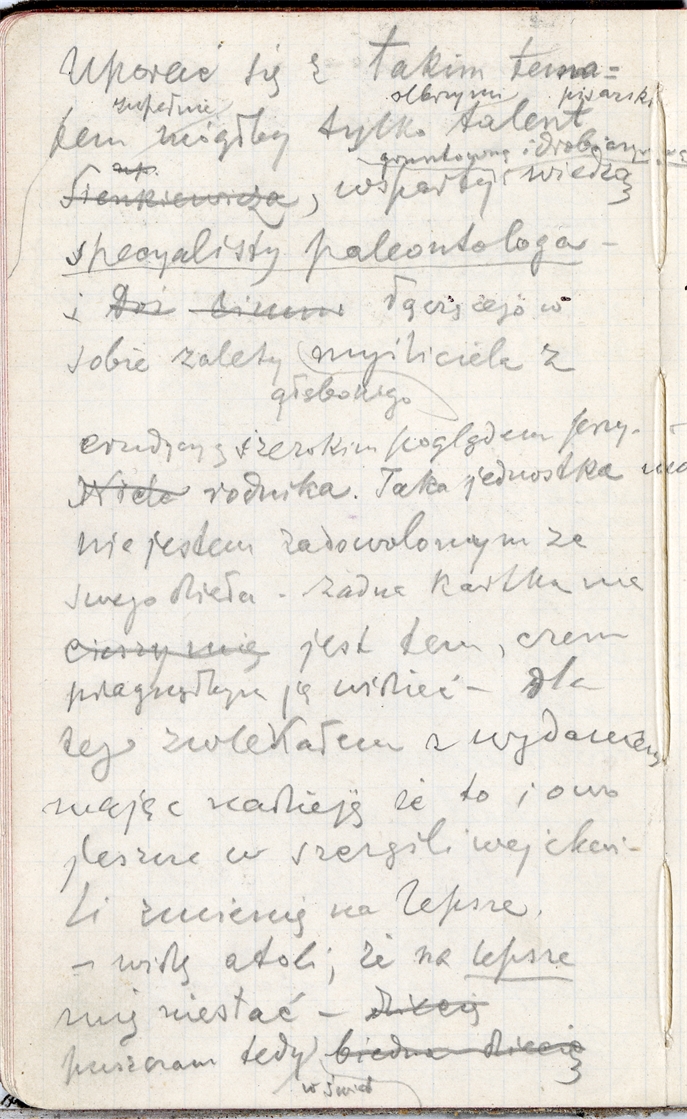 Uporać się z takim tema=
zupełnie olbrzymi pisarski
tem mógłby tylko talent
np. gruntowną i drobiazgową
Sienkiewicza, wsparty wiedzą
specyalisty paleontologa -
i łączącego w
sobie zalety myśliciela z
głębokigo
erudycyą szerokim poglądem przy-
rodnika. Taka jednostka
nie jestem zadowolonym ze
swego dzieła - żadna kartka nie
cieszy mię jest tem, czem
pragnąłbym ją widzieć - dla
tego zwlekałem z wydaniem
mając nadzieję że to i owo
jeszcze w szczęśliwej chwi-
li zmienię na lepsze.
- widzę atoli, że na lepsze
mię niestać - dziecię
puszczam tedy biedne dziecię
w świat